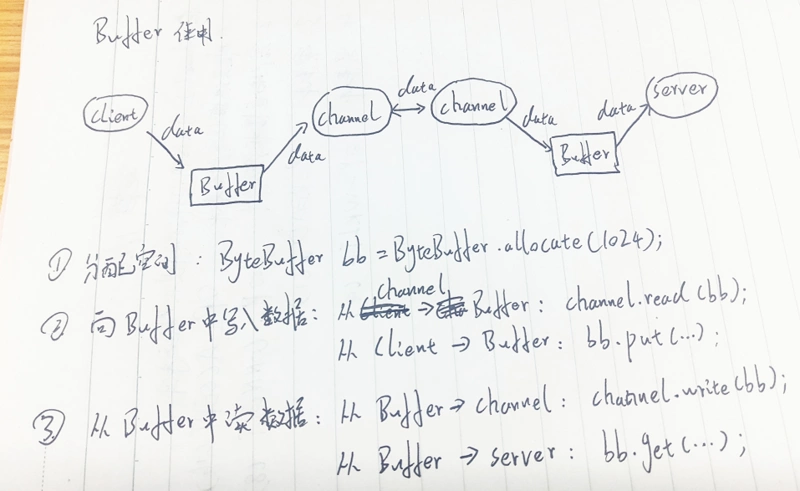 Buffer 使用.
client data Buffer data channel data channel data Buffer data server
① 分配空间: ByteBuffer bb = ByteBuffer.allocate(1024);
② 向Buffer中写入数据: 从 channel → Buffer: channel.read(bb);
从 Client → Buffer: bb.put(...);
③ 从Buffer中读数据: 从 Buffer → channel: channel.write(bb);
从 Buffer → server: bb.get(...);